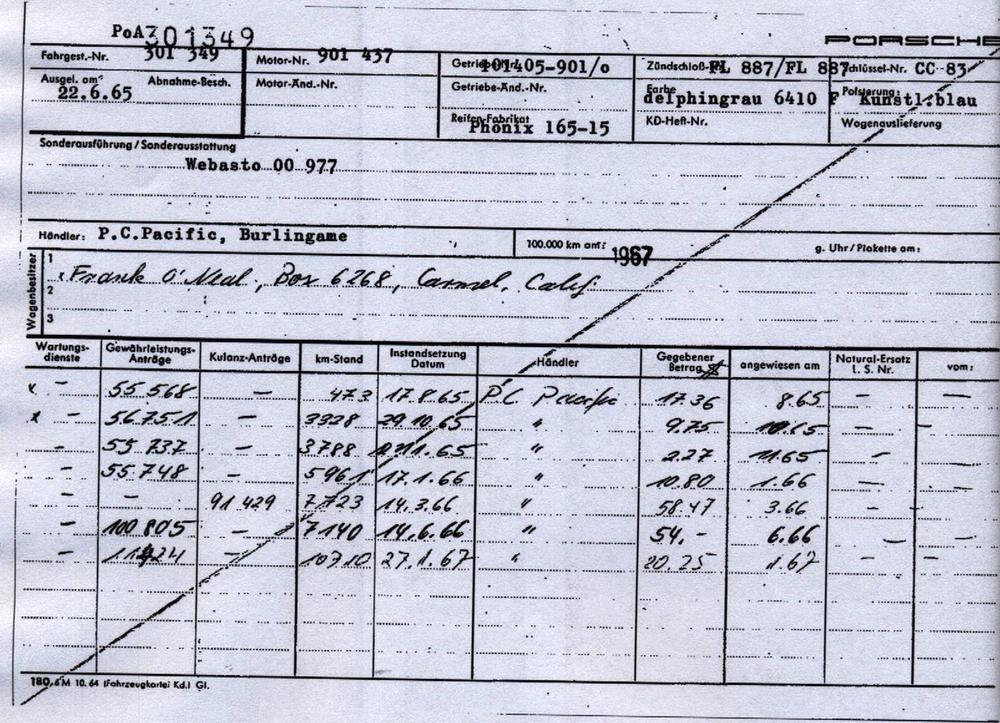 PoA301349
PORSCHE
Fahrgest.-Nr. 301 349 Motor-Nr. 901 437 101405-901/o Zündschloß- FL 887/FL 887 Schlüssel-Nr. CC 83
Ausgel. am: Abnahme-Besch. Motor-Änd.-Nr. Getriebe-Änd.-Nr. Farbe Polsterung:
22.6.65 delphingrau 6410 F Kunstl.blau
Reifen-Fabrikat KD-Heft-Nr. Wagenauslieferung
Phönix 165-15
Sonderausführung/Sonderausstattung
Webasto 00 977
Händler: P.C.Pacific, Burlingame 100.000 km am: 1967 g. Uhr/Plakette am:
Wagenbesitzer
1
Frank O'Neal, Box 6268, Carmel, Calif.
2
3
Wartungs-dienste Gewährleistungs-Anträge Kulanz-Anträge km-Stand Instandsetzung Datum Händler Gegebener Betrag $ angewiesen am Natural-Ersatz L. S. Nr. vom:
x - 55 568 - 473 17.8.65 P.C. Pacific 17.36 8.65 - -
x - 56 751 - 3328 29.10.65 " 9.75 10.65 - -
- 55 737 - 3788 11.65 " 2.27 11.65 - -
- 55 748 - 5961 17.1.66 " 10.80 1.66 - -
- - 91 429 7723 14.3.66 " 58.47 3.66 - -
- 100 805 - 7140 14.6.66 " 54.- 6.66 - -
- - 10710 27.1.67 " 20.25 1.67 - -
180.6M 10. 64 (Fahrzeugkartei Kd.I Gl.